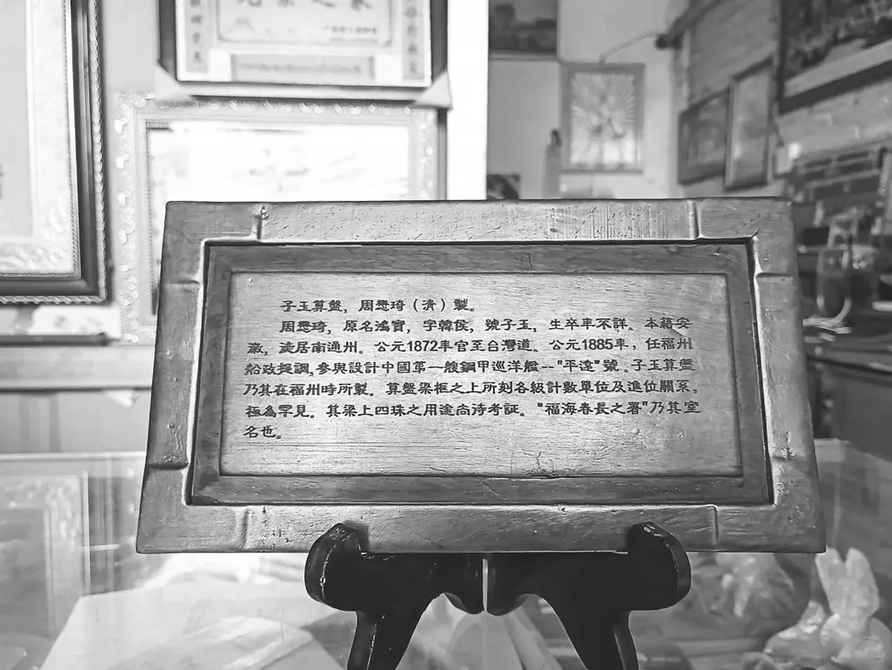 子玉算盤，周懋琦（清）製。
周懋琦，原名鴻寶，字韓侯，號子玉，生卒年不詳。本籍安
徽，遊居南通州。公元1872年官至台灣道。公元1885年，任福州
船政提調,參與設計中國第一艘鋼甲巡洋艦--"平遠"號。子玉算盤
乃其在福州時所製。算盤梁框之上所刻各級計數單位及進位關系。
極為罕見。其梁上四珠之用途尚待考証。"福海春長之署"乃其室
名也。